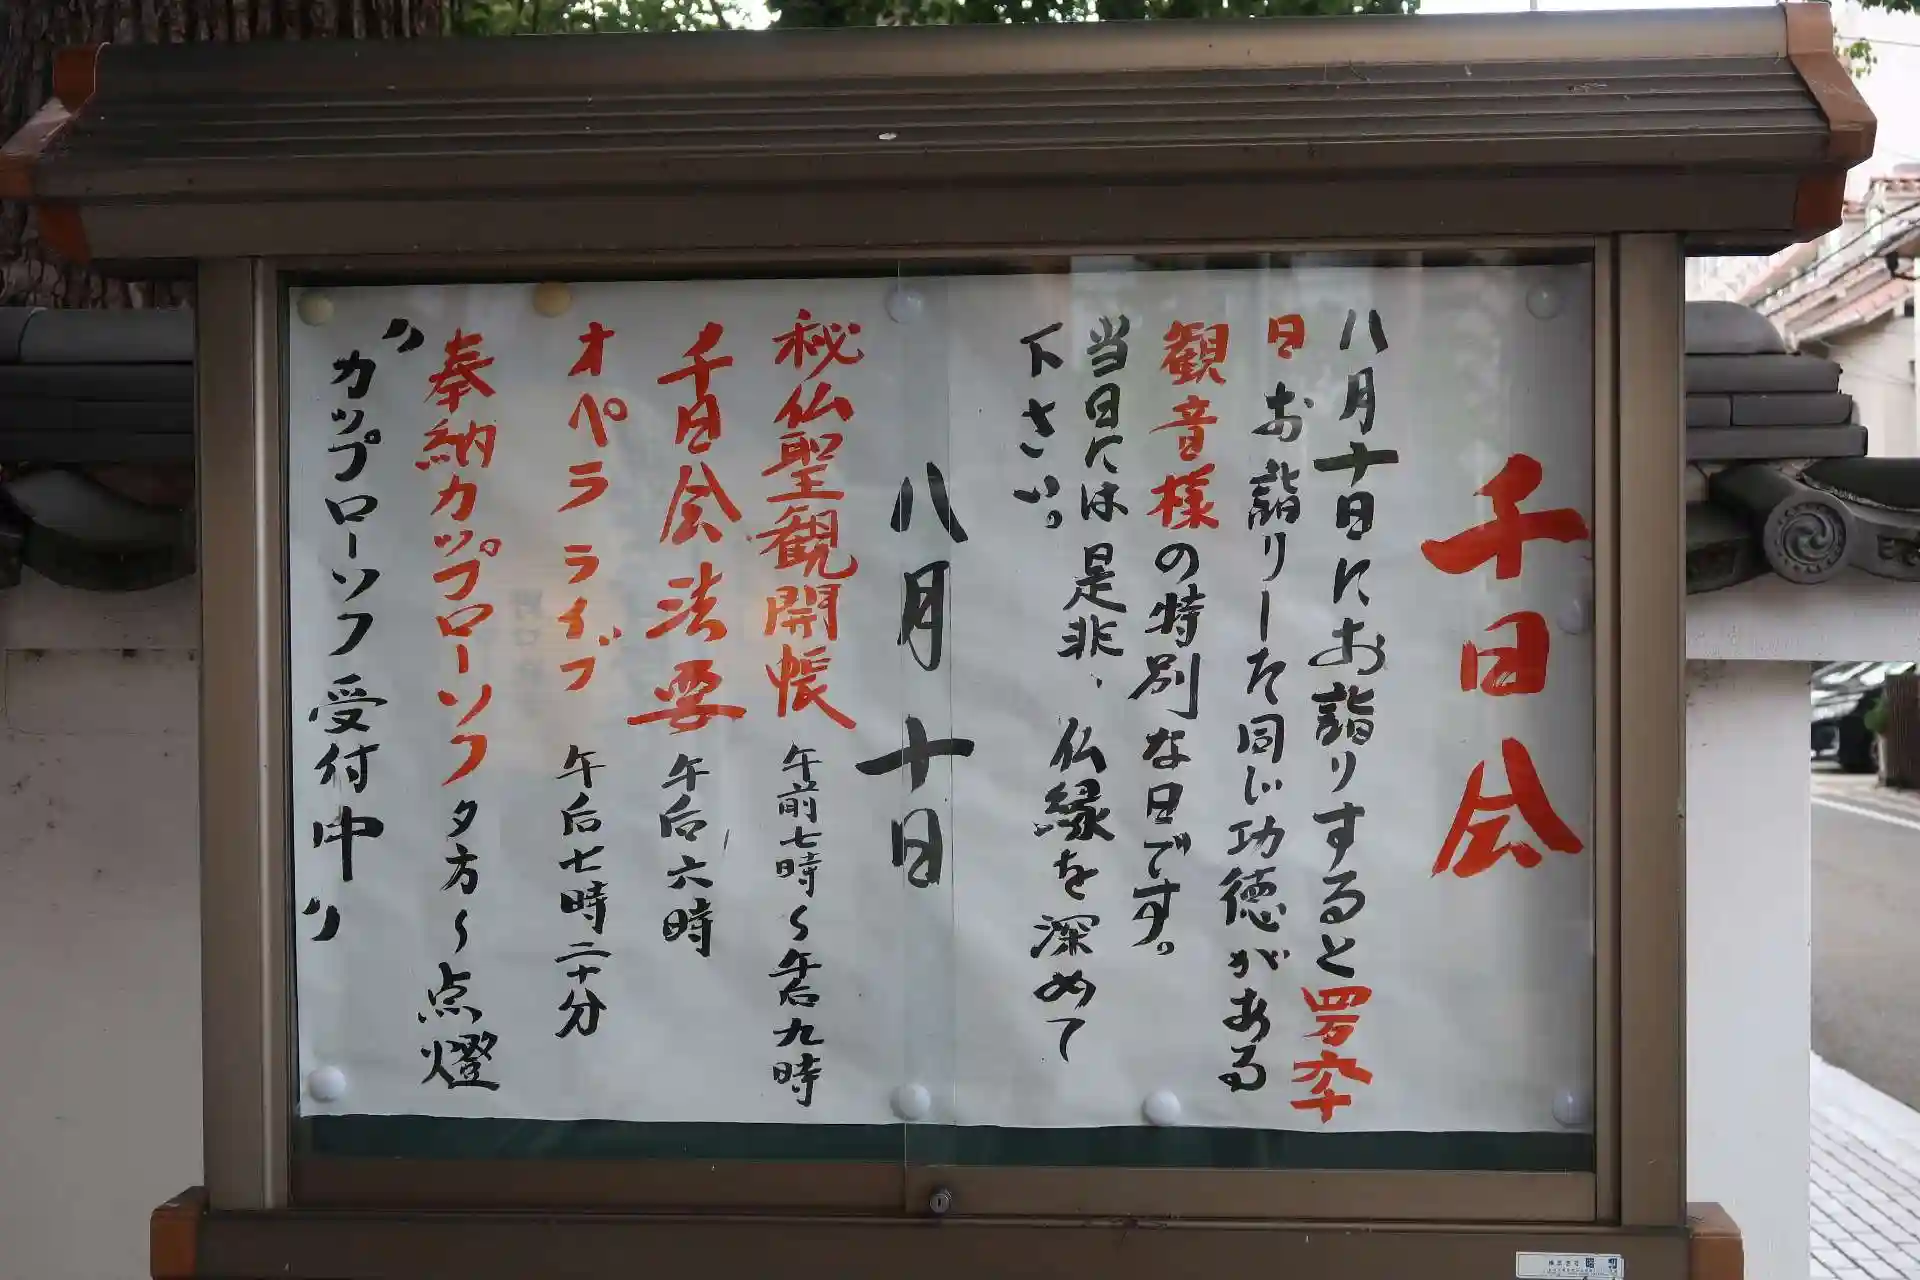 千日会
八月十日にお詣りすると四万六千
日お詣りした同じ功徳がある
観音様の特別な日です。
当日には是非、仏縁を深めて
下さい。
八月十日
秘仏聖観開帳 午前七時〜午后九時
千日会法要 午后六時
オペラライブ 午后七時二十分
奉納カップローソク 夕方〜点燈
〃カップローソク受付中〃